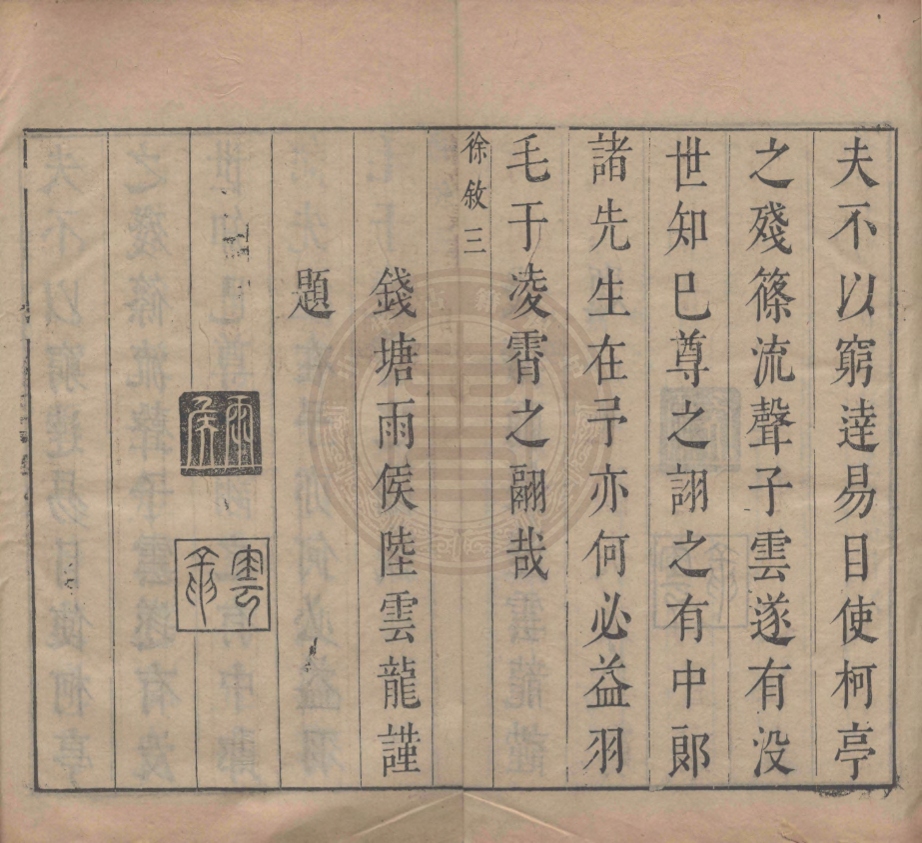 夫不以窮達易目使柯亭
之殘篠流聲子雲遂有没
世知已尊之詡之有中郎
諸先生在予亦何必益羽
毛于凌霄之翮哉
徐敘三
錢塘雨侯陸雲龍謹
題
雨侯